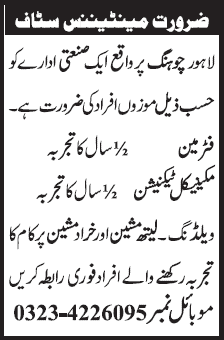 ضرورت مینٹیننس سٹاف
لاہور چوہنگ پر واقع ایک صنعتی ادارے کو
حسب ذیل موزوں افراد کی ضرورت ہے۔
فٹر مین ½ سال کا تجربہ
مکینیکل ٹیکنیشن ½ سال کا تجربہ
ویلڈنگ۔ لیتھ مشین اور خراد مشین پر کام کا
تجربہ رکھنے والے افراد فوری رابطہ کریں
موبائل نمبر 0323-4226095